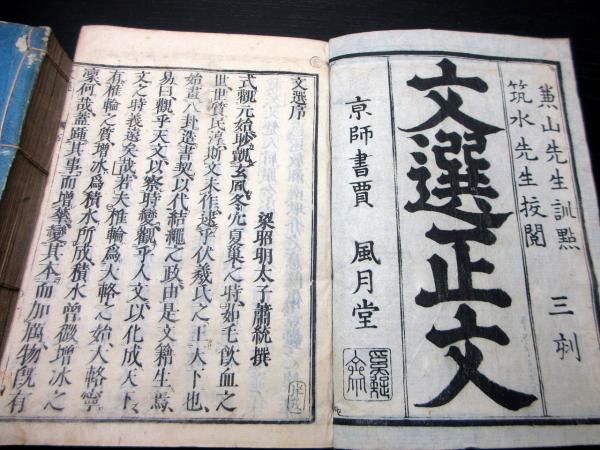 山先生訓點 三刻
筑水先生挍閱
文選正文
京師書賈 風月堂
文選序
梁昭明太子蕭統撰
式觀元始眇覿玄風冬穴夏巢之時茹毛飲血之
世世質民淳斯文未作逮乎伏羲氏之王天下也
始畫八卦造書契以代結繩之政由是文籍生焉
易曰觀乎天文以察時變觀乎人文以化成天下
文之時義遠矣哉若夫椎輪爲大輅之始大輅寧
有椎輪之質增冰爲積水所成積水曾微增冰之
凜何哉蓋踵其事而增華變其本而加厲物既有